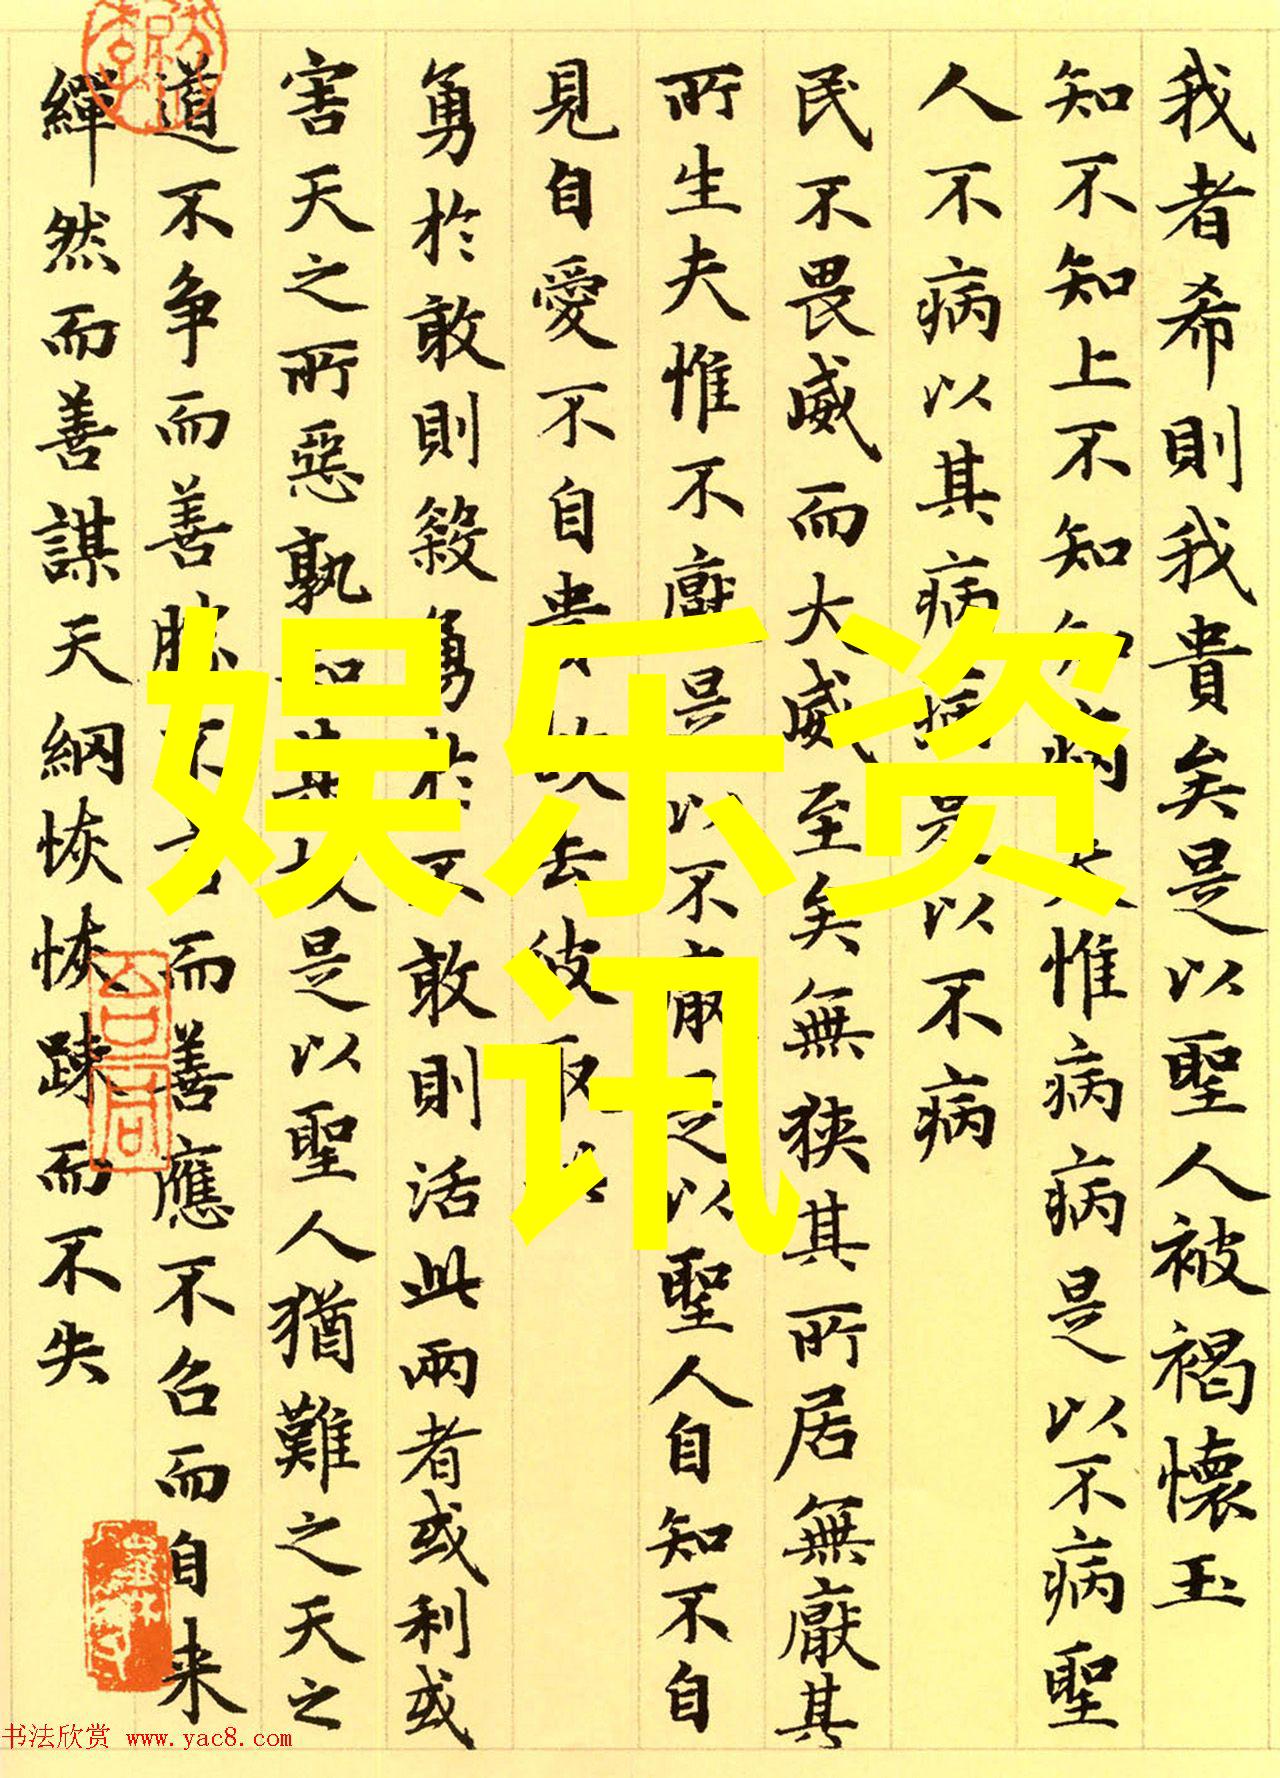 我者希則我貴矣是以聖人被褐懷玉
知不知上不知知病夫惟病病是以不病聖
人不病以其病病是以不病
民不畏威而大威至矣無狹其所居無厭其
所生夫惟不厭是以不厭是以聖人自知不自
見自愛不自貴故去彼取此
勇於敢則殺勇於不敢則活此兩者或利或
害天之所惡孰知其故是以聖人猶難之天之
道不争而善勝不言而善應不召而自来
繟然而善謀天網恢恢踈而不失
娱乐资
讯
书法欣赏 www.yac8.com